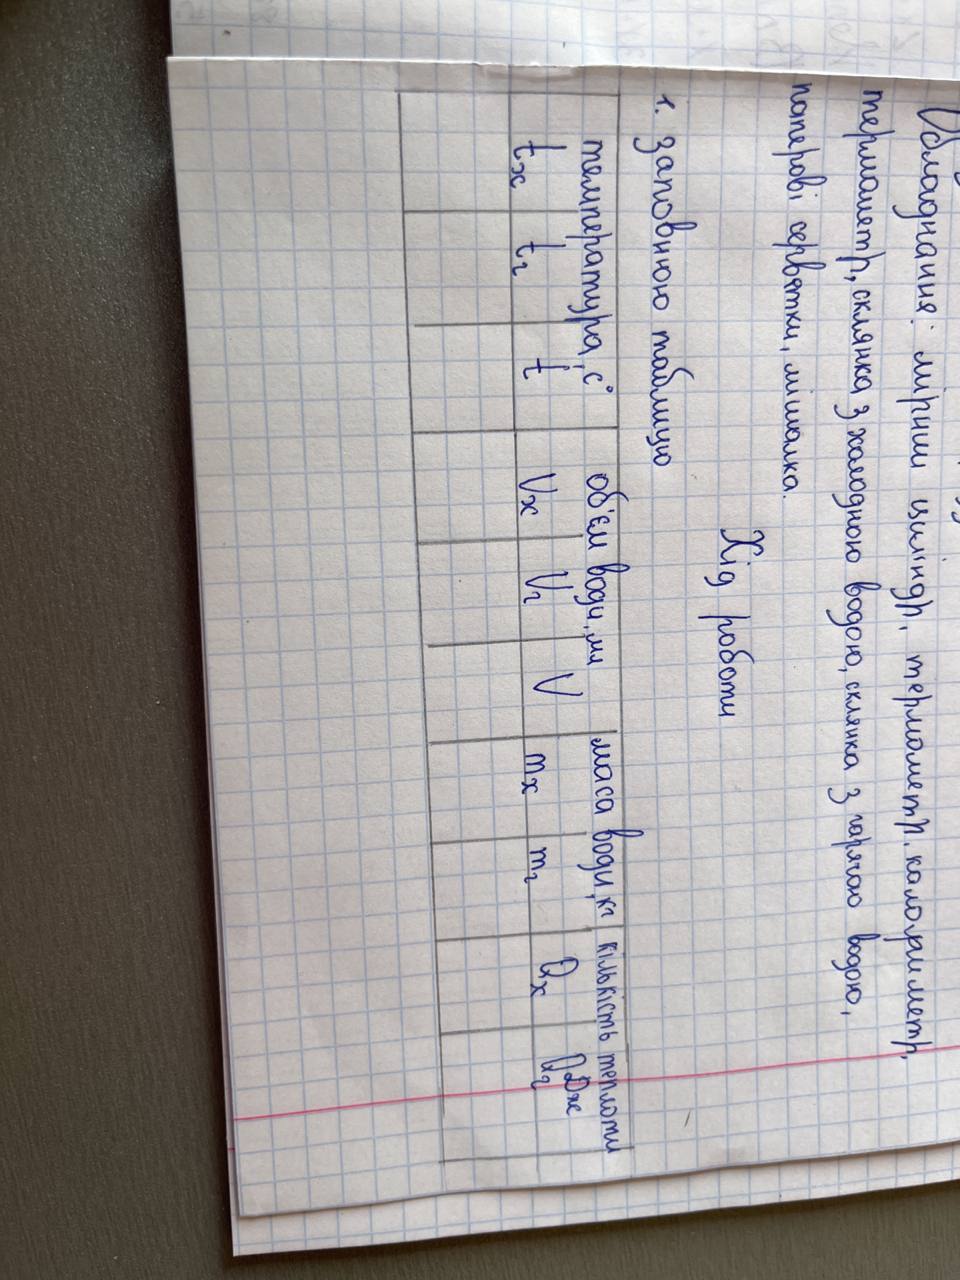 Обладнання: мірний циліндр, термометр, калориметр,
термометр, склянка з холодною водою, склянка з гарячою водою,
паперові серветки, мішалка.
Хід роботи
1. Заповнюю таблицю
температура, c° об'єм води, мл маса води, кг кількість теплоти
Дж
tx tг t Vx Vг V mx mг Qx Qг